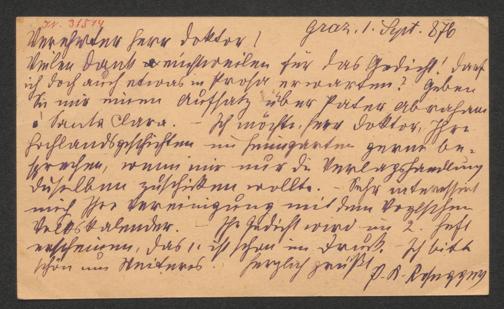 Nr. 31514
Graz, 1. Sept. 876
Verehrter Herr Doktor!
Vielen Dank einstweilen für das Gedicht! Darf
ich doch auch etwas in Prosa erwarten? Geben
Sie mir einen Aufsatz über Pater Abraham
a Santa Clara. Ich möchte, Herr Doktor, Ihre
Hochlandsgeschichten im Heimgarten gerne be-
sprechen, wenn mir nur die Verlagshandlung
dieselben zuschicken wollte. – Sehr interessirt
mich Ihre Vereinigung mit dem Vogl'schen
Volkskalender. – Ihr Gedicht wird im 2. Heft
erscheinen, das 1. ist schon im Druck. – Ich bitte
schön um Weiteres. Herzlich grüßt
P. K. Rosegger